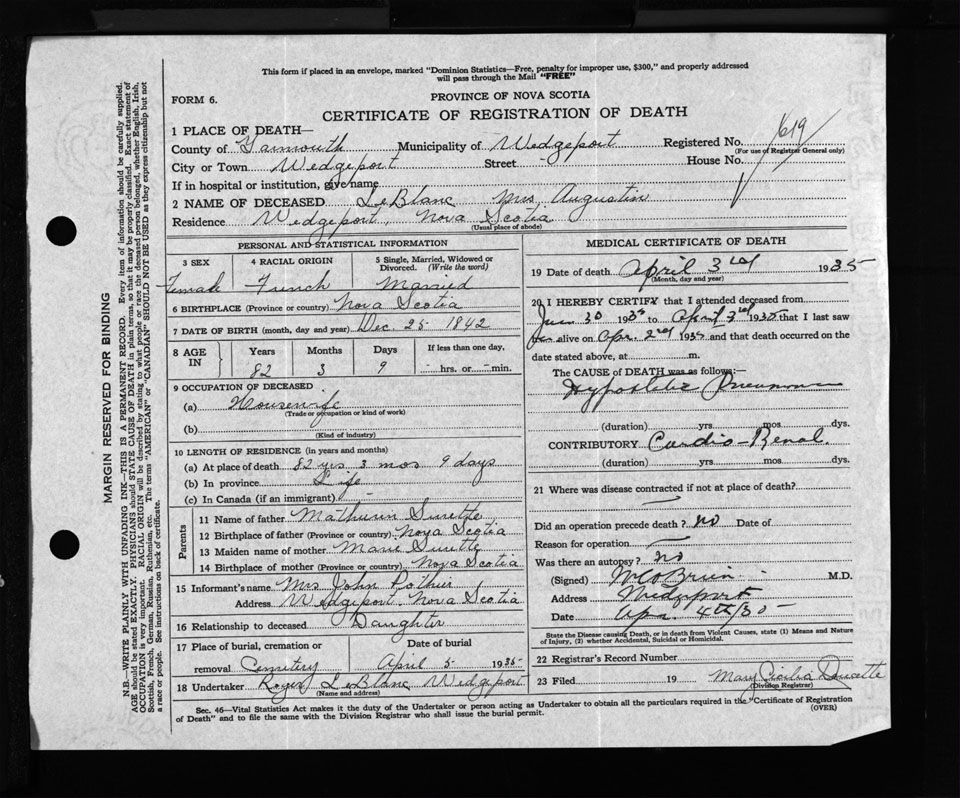 This form if placed in an envelope, marked "Dominion Statistics—Free, penalty for improper use, $300," and properly addressed
will pass through the Mail "FREE"
FORM 6.
PROVINCE OF NOVA SCOTIA
CERTIFICATE OF REGISTRATION OF DEATH
1 PLACE OF DEATH—
County of Yarmouth Municipality of Wedgeport Registered No. 1619
(For use of Registrar General only)
City or Town Wedgeport Street - House No.
If in hospital or institution, give name
2 NAME OF DECEASED LeBlanc Mrs Augustin
Residence Wedgeport, Nova Scotia
(Usual place of abode)
PERSONAL AND STATISTICAL INFORMATION
3 SEX 4 RACIAL ORIGIN 5 Single, Married, Widowed or
Divorced. (Write the word)
Female French Married
6 BIRTHPLACE (Province or country) Nova Scotia
7 DATE OF BIRTH (month, day and year) Dec. 25 1842
8 AGE IN Years Months Days If less than one day,
82 3 9 - hrs. or - min.
9 OCCUPATION OF DECEASED
(a) Housewife
(Trade or occupation or kind of work)
(b)
(Kind of industry)
10 LENGTH OF RESIDENCE (in years and months)
(a) At place of death 82 yrs 3 mos 9 days
(b) In province Life
(c) In Canada (if an immigrant) -
Parents
11 Name of father Mathurin Surette
12 Birthplace of father (Province or country) Nova Scotia
13 Maiden name of mother Marie Surette
14 Birthplace of mother (Province or country) Nova Scotia
15 Informant's name Mrs John Pothier
Address Wedgeport, Nova Scotia
16 Relationship to deceased Daughter
17 Place of burial, cremation or Date of burial
removal Cemetery April 5 1935
18 Undertaker Roger LeBlanc Wedgeport
(Name and address)
MEDICAL CERTIFICATE OF DEATH
19 Date of death April 3rd 1935
(Month, day and year)
20 I HEREBY CERTIFY that I attended deceased from
30 1935 to April 3rd 1935 that I last saw
her alive on Apr. 2nd 1935 and that death occurred on the
date stated above, at m.
The CAUSE of DEATH was as follows:—
Hypostatic Pneumonia
(duration) yrs. mos. dys.
CONTRIBUTORY Cardio-Renal.
(duration) yrs. mos. dys.
21 Where was disease contracted if not at place of death?
Did an operation precede death? no Date of
Reason for operation
Was there an autopsy? no
(Signed) O'Brien M.D.
Address Wedgeport
Date Apr. 4th/35
State the Disease causing Death, or in death from Violent Causes, state (1) Means and Nature
of Injury, (2) whether Accidental, Suicidal or Homicidal.
22 Registrar's Record Number
23 Filed 19 Mary Cecilia Doucette
(Division Registrar)
Sec. 46—Vital Statistics Act makes it the duty of the Undertaker or person acting as Undertaker to obtain all the particulars required in the "Certificate of Registration
of Death" and to file the same with the Division Registrar who shall issue the burial permit.
(OVER)
MARGIN RESERVED FOR BINDING
N.B.—WRITE PLAINLY WITH UNFADING INK—THIS IS A PERMANENT RECORD. Every item of information should be carefully supplied.
AGE should be stated EXACTLY. PHYSICIANS should STATE CAUSE OF DEATH in plain terms, so that it may be properly classified. Exact statement of
OCCUPATION is very important. RACIAL ORIGIN will be described by stating to what people or race the deceased person belonged, whether English, Irish,
Scottish, French, German, Russian, Ruthenian, etc. The terms "AMERICAN" or "CANADIAN" SHOULD NOT BE USED as they express citizenship but not
a race or people. See instructions on back of certificate.